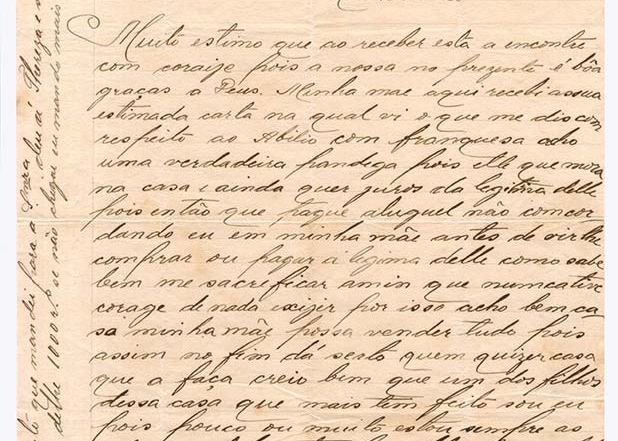 Muito estimo que ao receber esta a encontre
com coraije pois a nossa no prezente é bôa
graças a Deus. Minha mae aqui recebi a sua
estimada carta na qual vi o que me dis com
respeito ao Abilio com franquesa acho
uma verdadeira pandega pois elle que mora
na casa e ainda quer juros da legitima delle
pois então que pague aluguel não comcor
dando eu em minha mãe antes de vir lhe
comprar ou pagar a legima delle como sabe
bem me sacreficar a min que nunca tive
corage de nada exijir por isso acho bem ca
sa minha mãe possa vender tudo pois
assim no fim dá serto quem quizer casa
que a faça creio bem que um dos filhos
dessa casa que mais tem feito sou eu
pois pouco ou muito estou sempre as
lo que mandei para a Snra dem á Thereza e
delhe 1000 r.s se não chegar eu mando mais